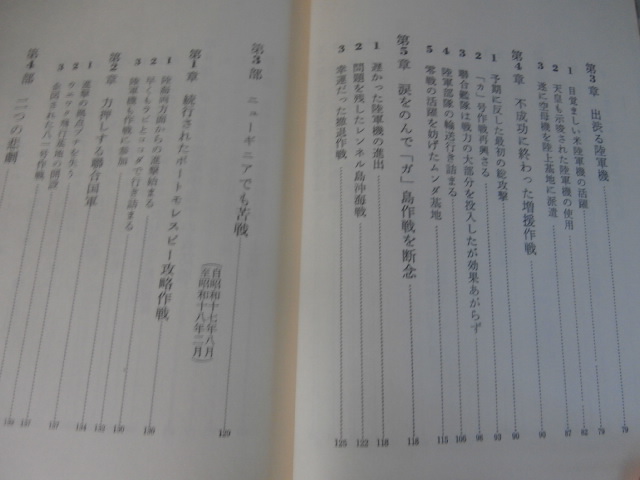 第3章 出渋る陸軍機 79
1 目覚ましい米陸軍機の活躍 79
2 天皇も示唆された陸軍機の使用 82
3 遂に空母機を陸上基地に派遣 87
第4章 不成功に終わった増援作戦 90
1 予期に反した最初の総攻撃 90
2 「カ」号作戦再興さる 93
3 聯合艦隊は戦力の大部分を投入したが効果あがらず 98
4 陸軍部隊の輸送行き詰まる 106
5 零戦の活躍を妨げたムンダ基地 115
第5章 涙をのんで「ガ」島作戦を断念 118
1 遅かった陸軍機の進出 118
2 問題を残したレンネル島沖海戦 122
3 幸運だった撤退作戦 125
第3部 ニューギニアでも苦戦 129
(自昭和十七年八月
至昭和十八年二月)
第1章 続行されたポートモレスビー攻略作戦
1 陸海両方面からの進撃始まる 130
2 早くもラビとココダで行き詰まる 130
3 陸軍機も作戦に参加
第2章 力押しする聯合国軍
1 進撃の拠点ブナを失う 134
2 飛行基地の開設 137
3 八一号作戦 137
第4部 二つの悲劇